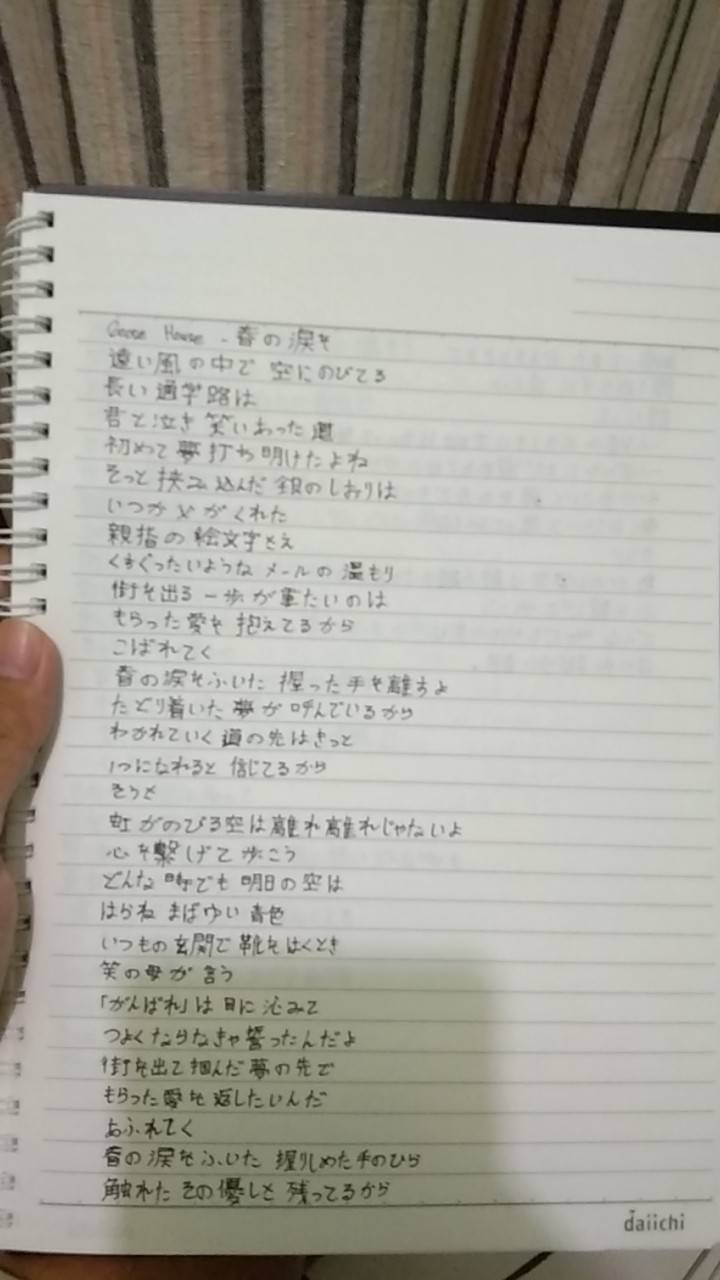 Goose House - 春の涙を
遠い風の中で 空にのびてる
長い通学路は
君と泣き笑いあった道
初めて夢打ち明けたよね
そっと挟み込んだ銀のしおりは
いつか父がくれた
親指の絵文字さえ
くすぐったいような メールの温もり
街を出る一歩が重たいのは
もらった愛を抱えてるから
こばれてく
春の涙をふいた 握った手を離すよ
たどり着いた夢が呼んでいるから
わかれていく道の先はきっと
1つになれると 信じてるから
そうさ
虹がのびる空は離れ離れじゃないよ
心を繋げて歩こう
どんな時でも 明日の空は
はらね まばゆい 青色
いつもの玄関で靴をはくとき
笑の母が言う
「がんばれ」は目に沁みて
つよくならなきゃ誓ったんだよ
街を出て掴んだ夢の先で
もらった愛を返したいんだ
あふれてく
春の涙をふいた 握りしめた手のひら
触れた その優しさ 残ってるから
daiichi